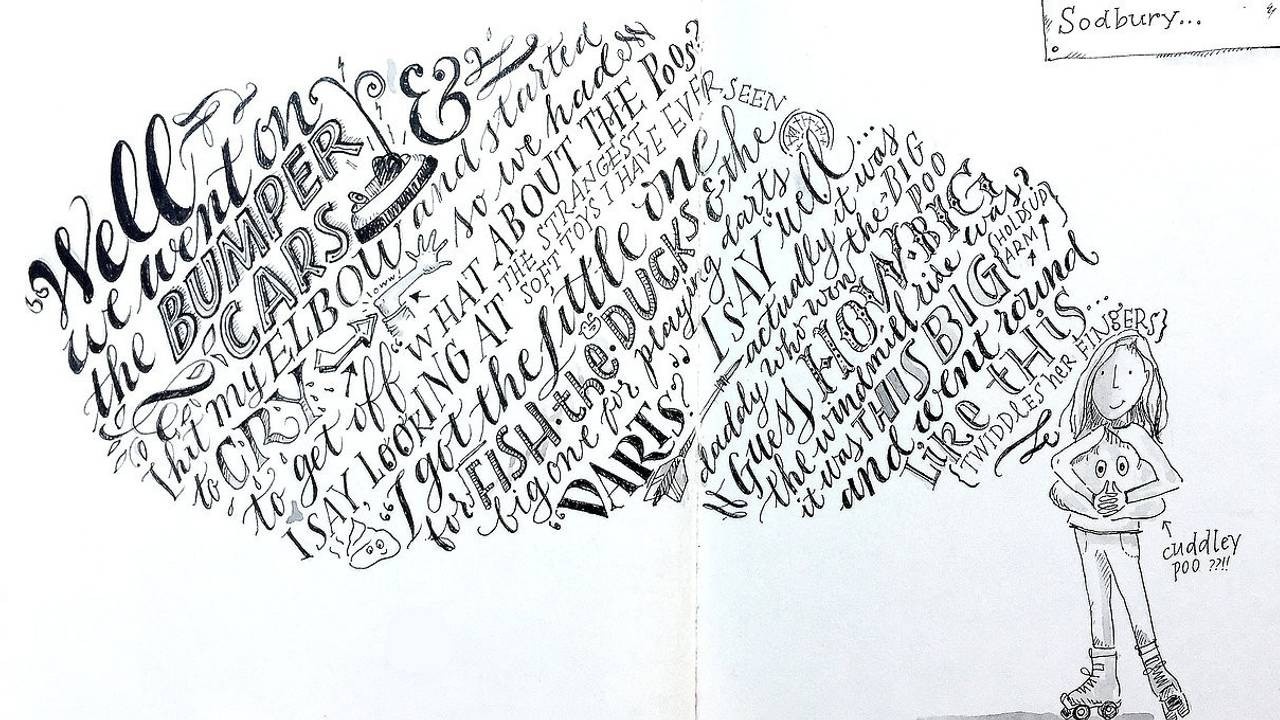 Sodbury...
"Well
we went on
the BUMPER
CARS &
I hit my ELBOW and started
to CRY so we had
to get off" "WHAT ABOUT THE POOS?"
I SAY, LOOKING AT THE STRANGEST
SOFT TOYS I HAVE EVER SEEN
"I got the little one
for FISH·the·DUCKS & the
big one for playing darts"
"DARTS?" I SAY "well...
actually it was
daddy who won the BIG
POO
GUESS HOW·BIG
the windmill ride was?
it was THIS BIG {HOLDS UP
ARM}
and went round
LIKE THIS...
{TWIDDLES HER FINGERS}
cuddley
poo ??!!